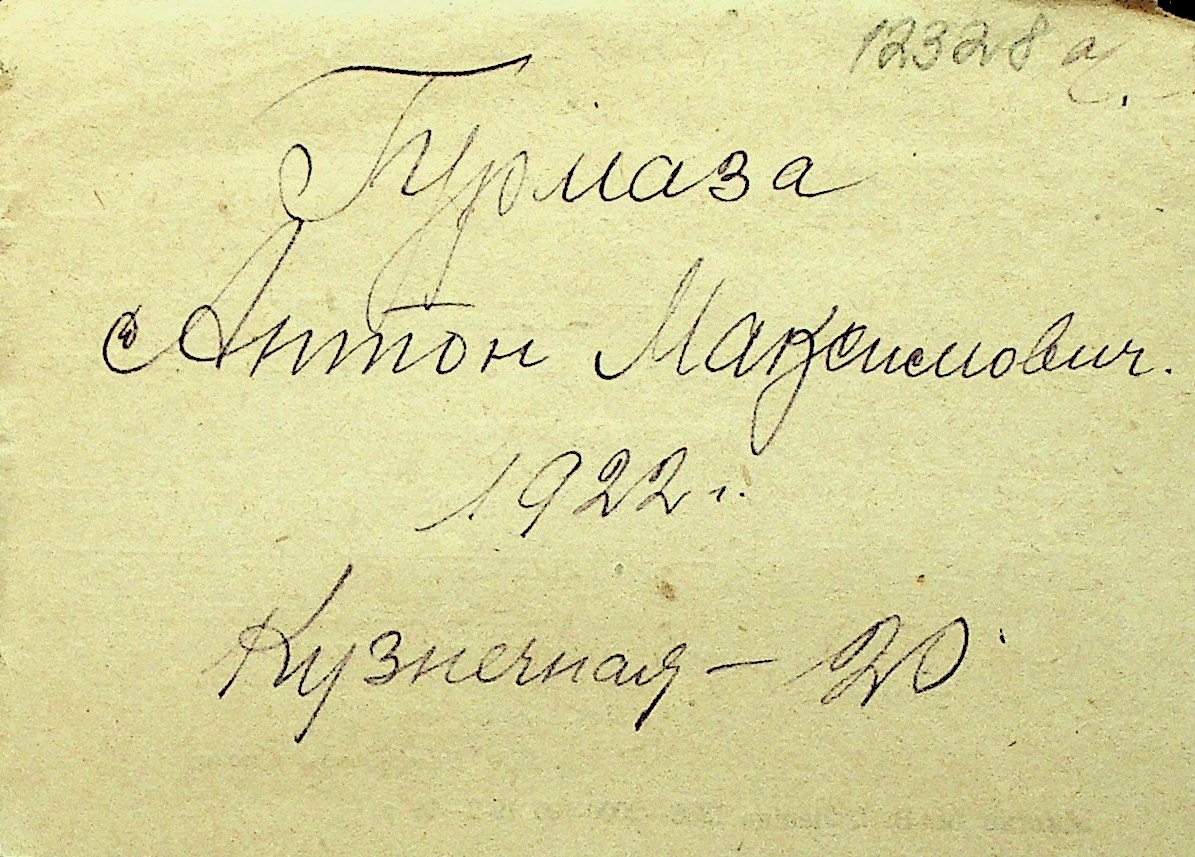 12328 а.
Гурмаза
Антон Максимович.
1922 г.
Кузнечная - 20